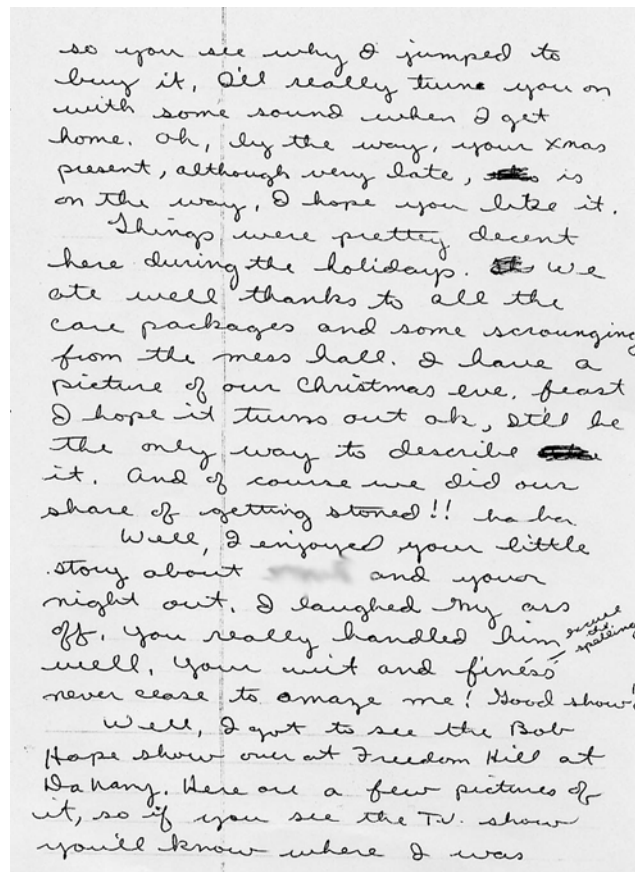 so you see why I jumped to
buy it, I'll really turn you on
with some sound when I get
home. Oh, by the way, your Xmas
present, although very late, is
on the way, I hope you like it.
Things were prettey decent
here during the holidays. We
ate well thanks to all the
care packages and some scrounging
from the mess hall. I have a
picture of our Christmas eve. feast
I hope it turns out ok, It'll be
the only way to describe
it. And of course we did our
share of getting stoned!! ha ha
Well, I enjoyed your little
story about and your
night out. I laughed my ass
off. You really handled him
excuse the spelling
well, your wit and finess
never cease to amaze me! Good show!
Well, I got to see the Bob
Hope show over at Freedom Hill at
Da Nang. Here are a few pictures of
it, so if you see the T.V. show
you'll know where I was